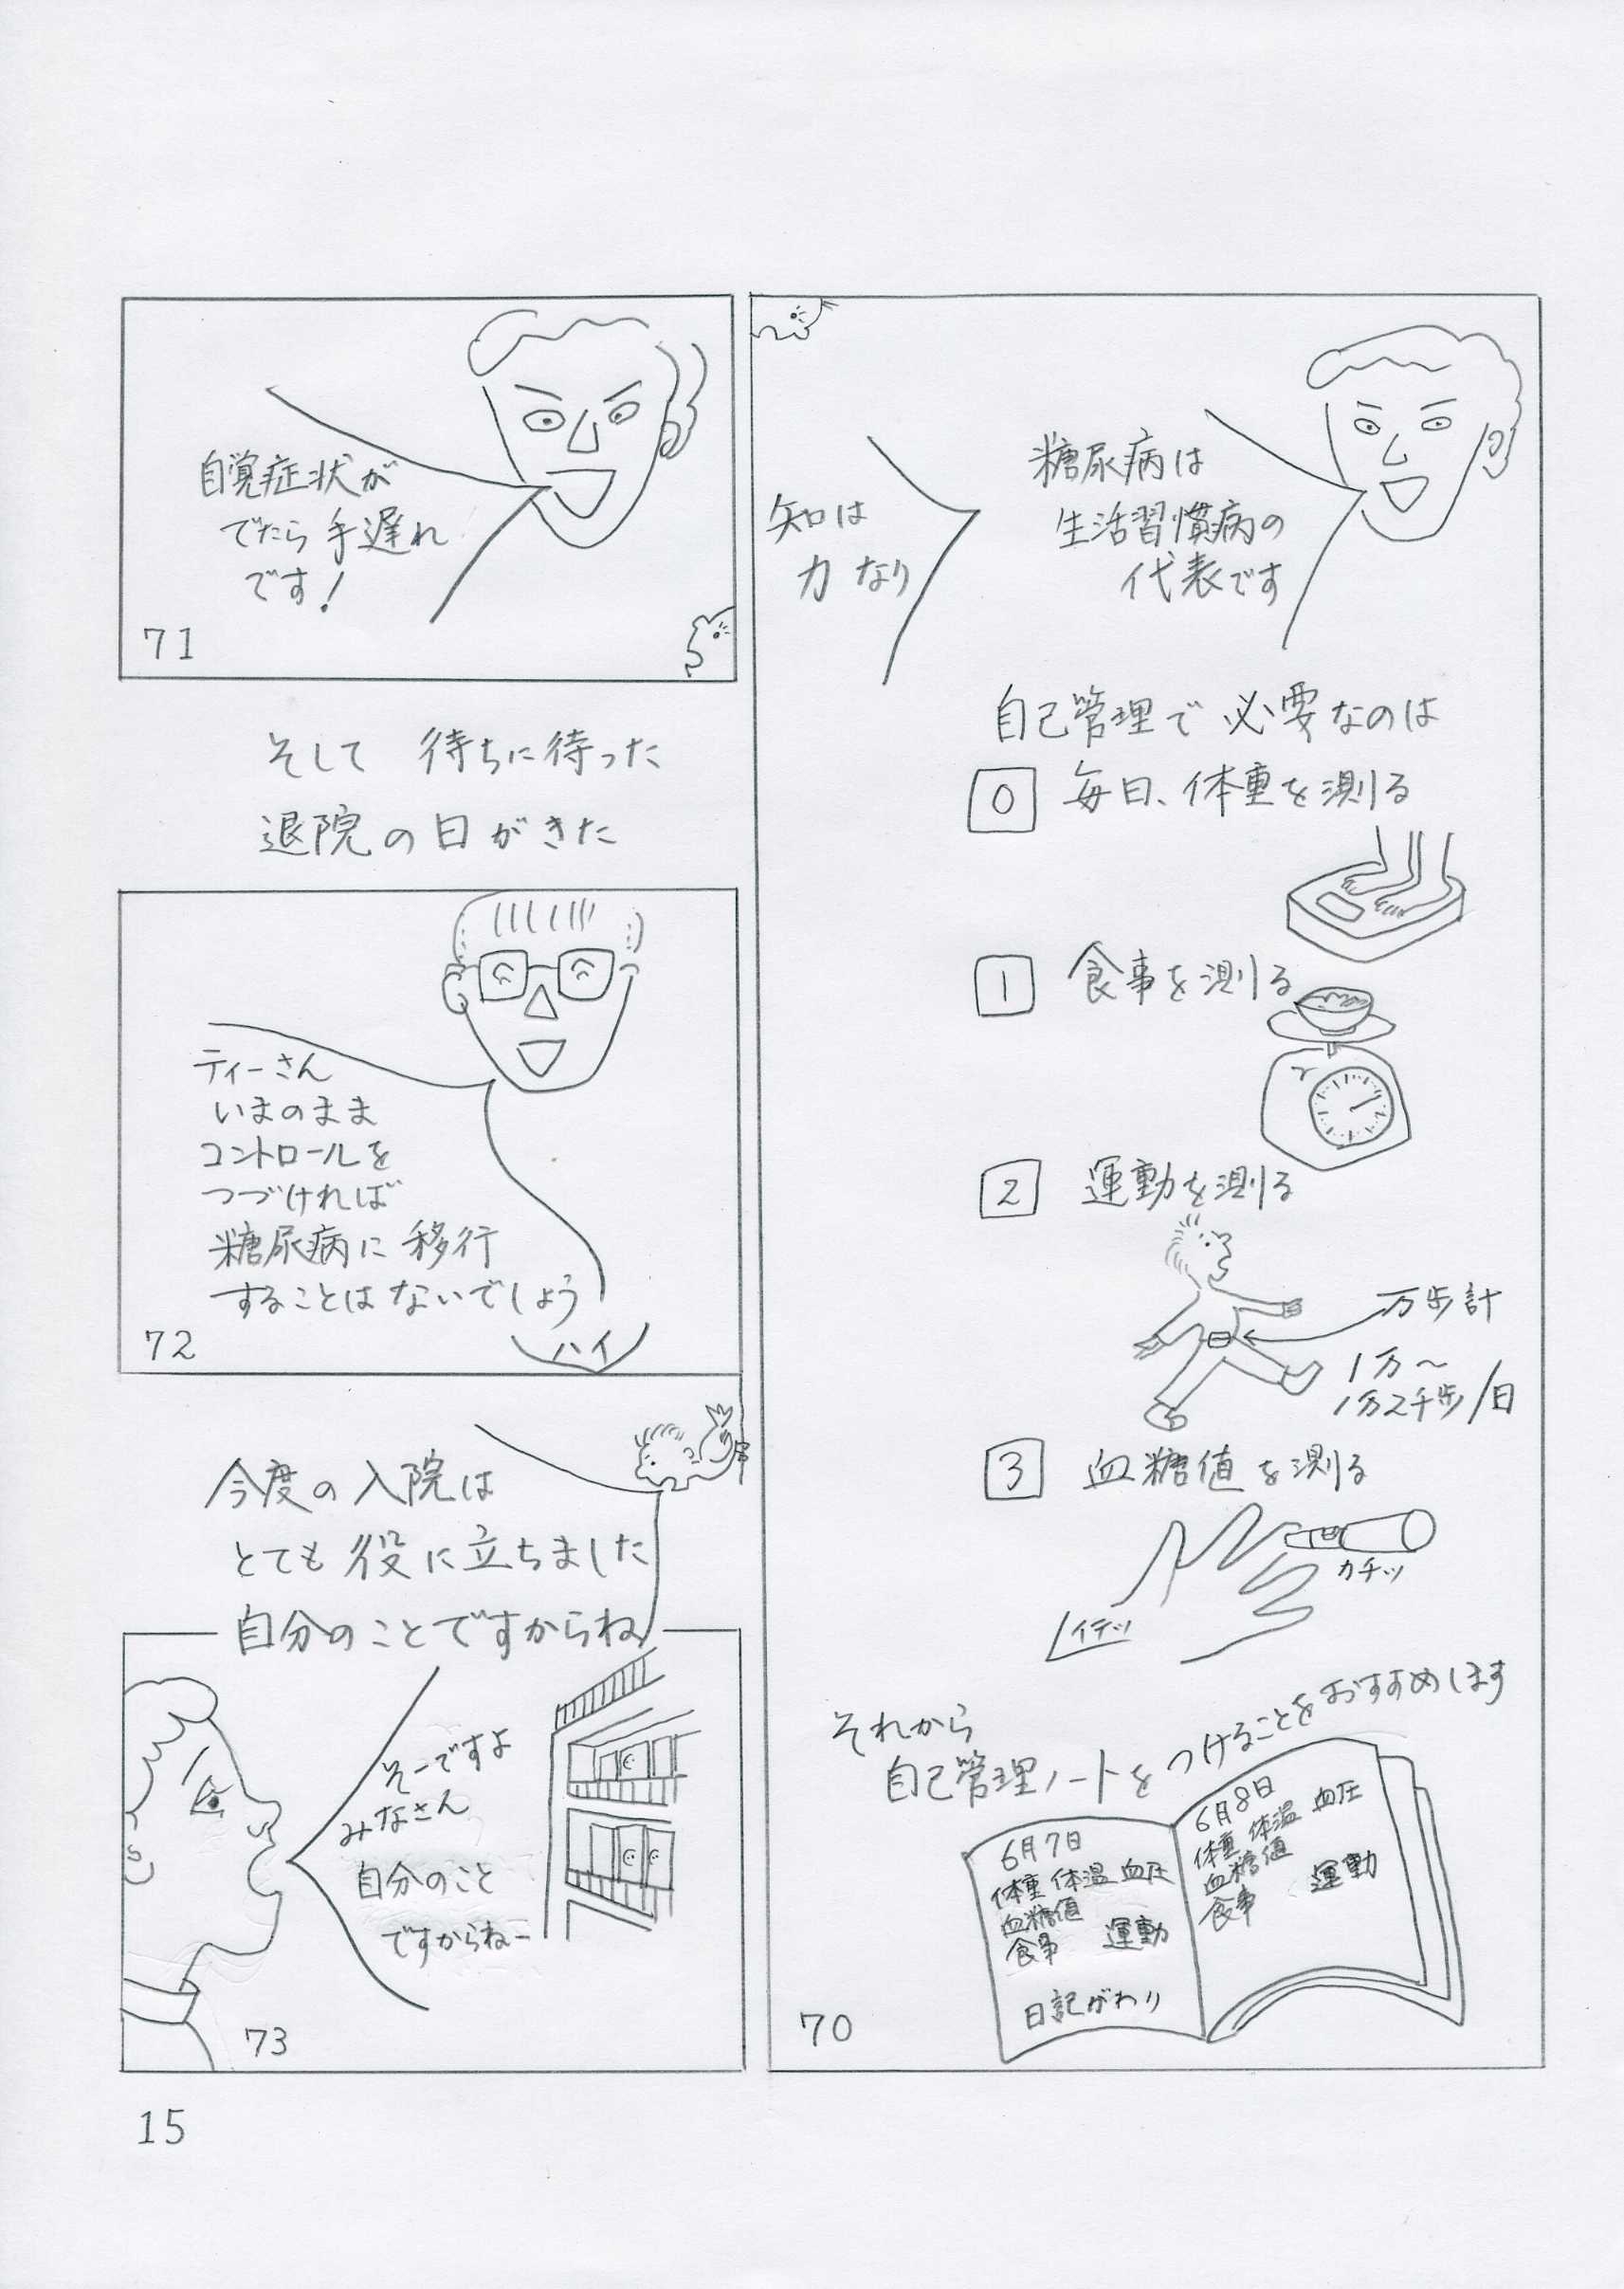 糖尿病は
生活習慣病の
代表です
知は
力なり
自己管理で必要なのは
0 毎日、体重を測る
1 食事を測る
2 運動を測る
万歩計
1万～
1万2千歩/日
3 血糖値を測る
カチッ
イテッ
それから
自己管理ノートをつけることをおすすめします
6月7日
体重 体温 血圧
血糖値
食事 運動
日記がわり
6月8日
体重 体温 血圧
血糖値
食事 運動
70
自覚症状が
でたら手遅れ
です!
71
そして 待ちに待った
退院の日がきた
ティーさん
いまのまま
コントロールを
つづければ
糖尿病に移行
することはないでしょう
ハイ
72
今度の入院は
とても役に立ちました
自分のことですからね
そーですよ
みなさん
自分のこと
ですからねー
73
15